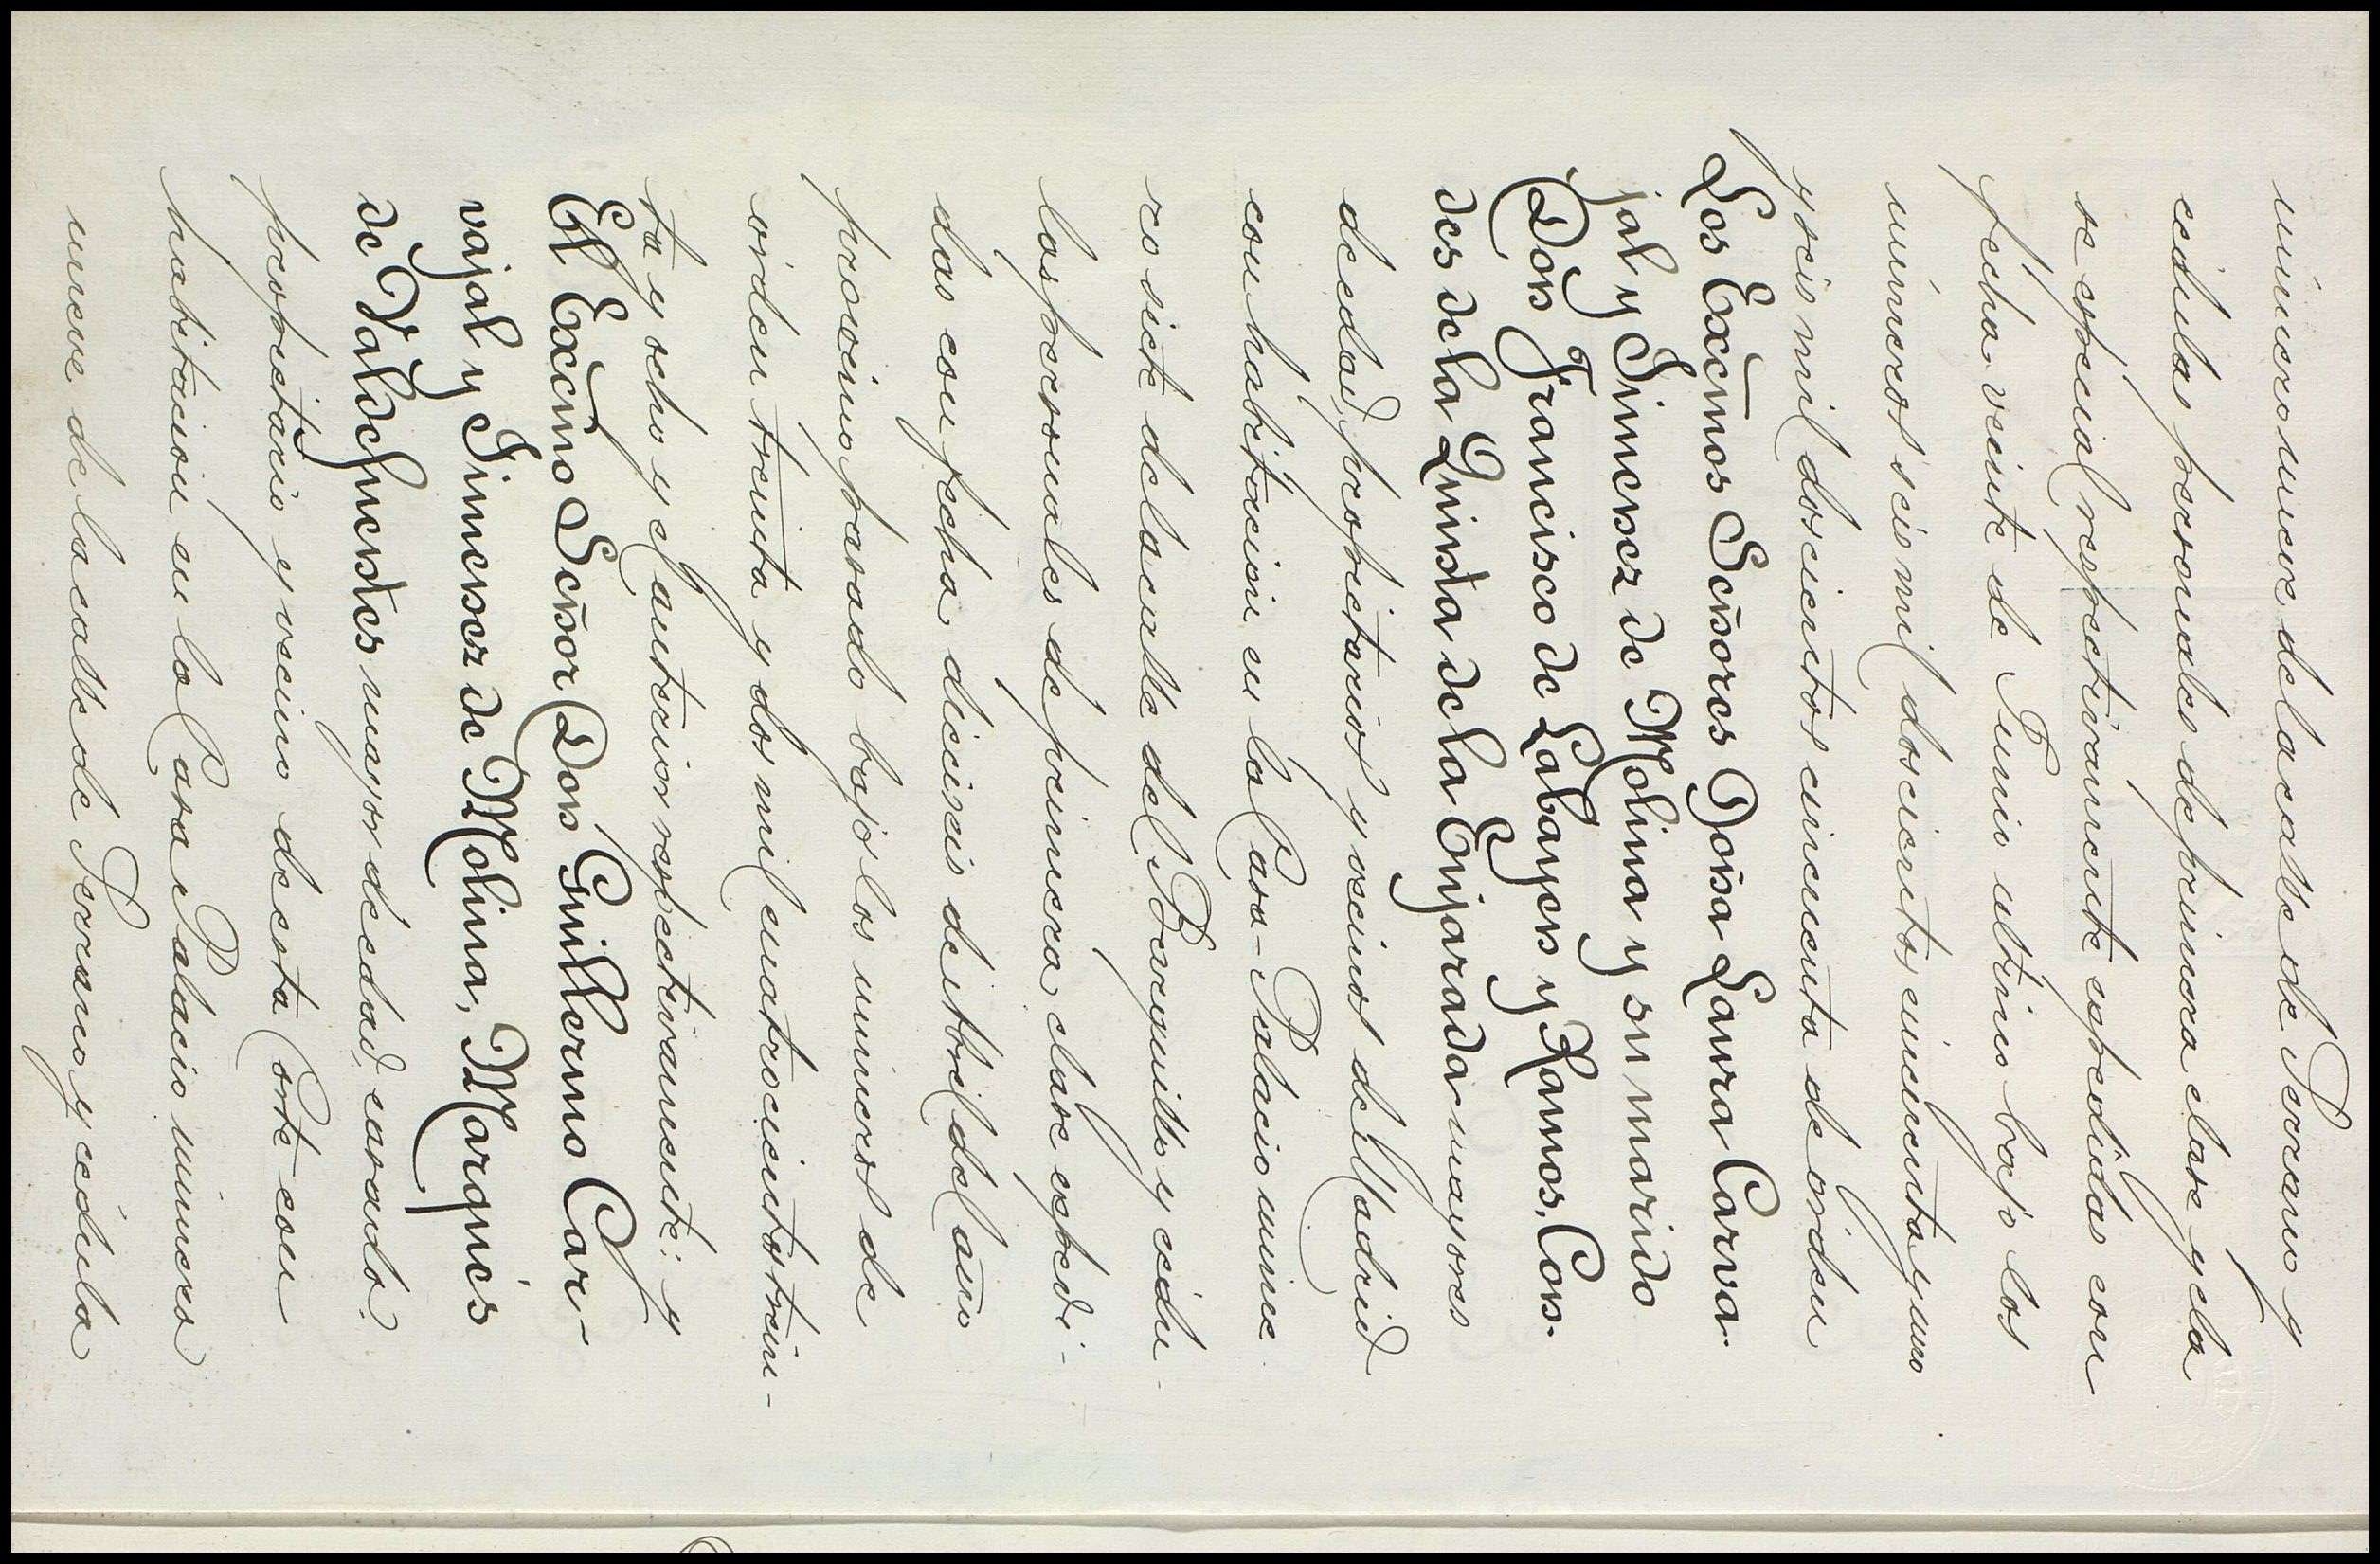 número nueve de la calle de Serrano y
cédulas personales de primera clase y cla
se especial respectivamente expedidas con
fecha veinte de Junio ultimo bajo los
números seis mil doscientos cincuenta y uno
y seis mil doscientos cincuenta de órden
Los Excmos Señores Doña Laura Carva-
jal y Jimenez de Molina y su marido
Don Francisco de Labayen y Ramos, Con-
des de la Quinta de la Enjarada mayores
de edad, propietarios y vecinos de Madrid
con habitacion en la Casa-Palacio nume-
ro siete de la calle del Barquillo y cédu-
las personales de primera clase expedi-
das con fecha dieciseis de Abril del año
proximo pasado bajo los numeros de
orden treinta y dos mil cuatrocientos trein-
ta y ocho y el anterior respectivamente: y
El Excmo Señor Don Guillermo Car-
vajal y Jimenez de Molina, Marqués
de Valdefuentes mayor de edad, casado,
propietario y vecino de esta Corte con
habitacion en la Casa Palacio número
nueve de la calle de Serrano y cédula